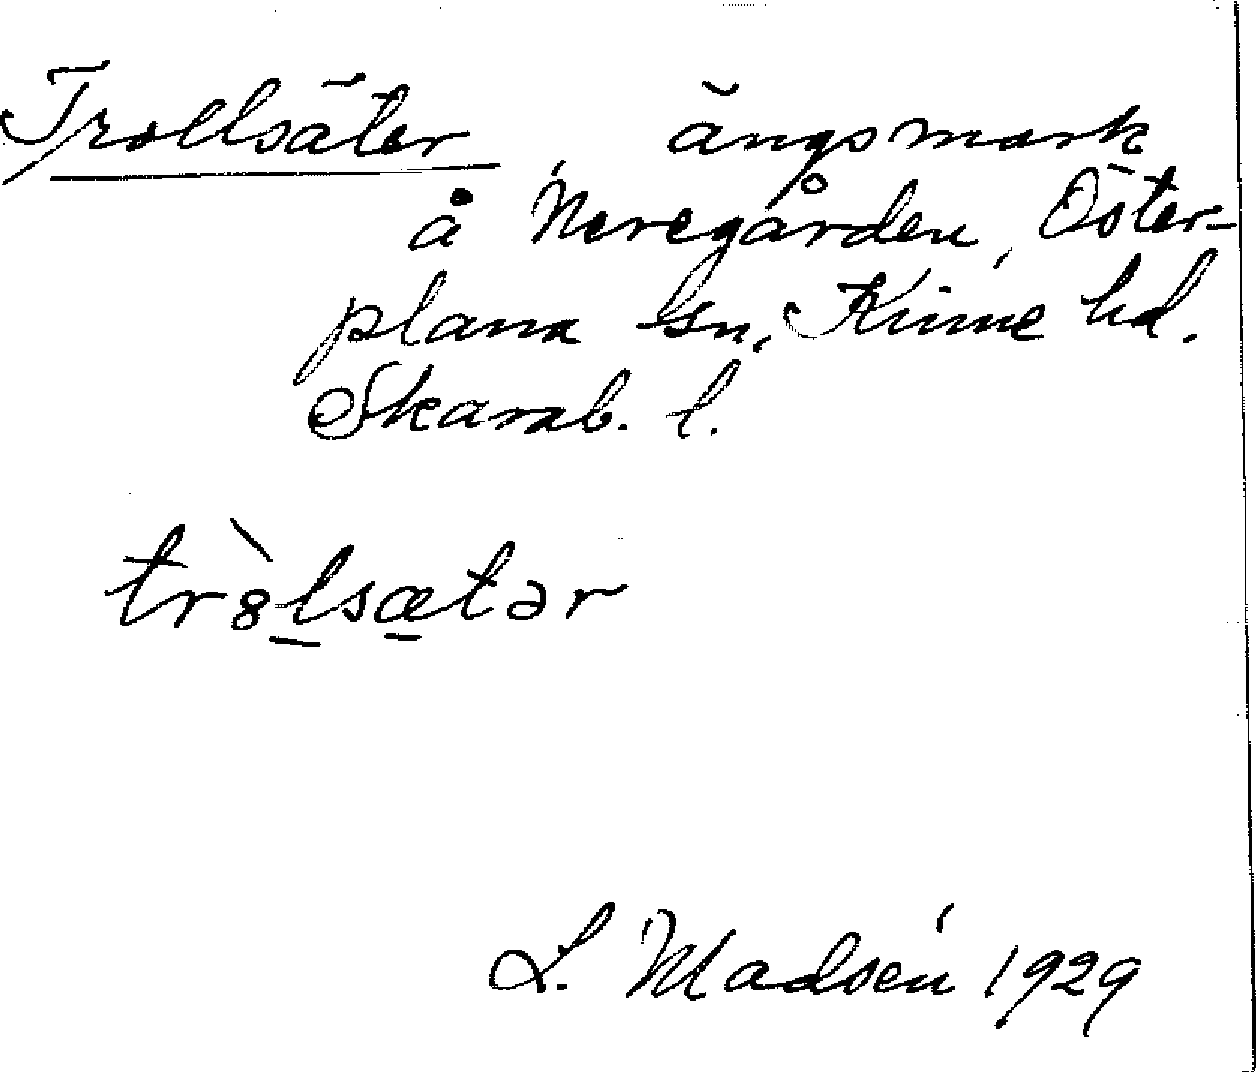 Trollsäter, ängsmark
å Neregården, Öster-
plana sn, Kinne hd.
Skarab. l.
tr8̀l̲sæ̲tər
L. Madsén 1929